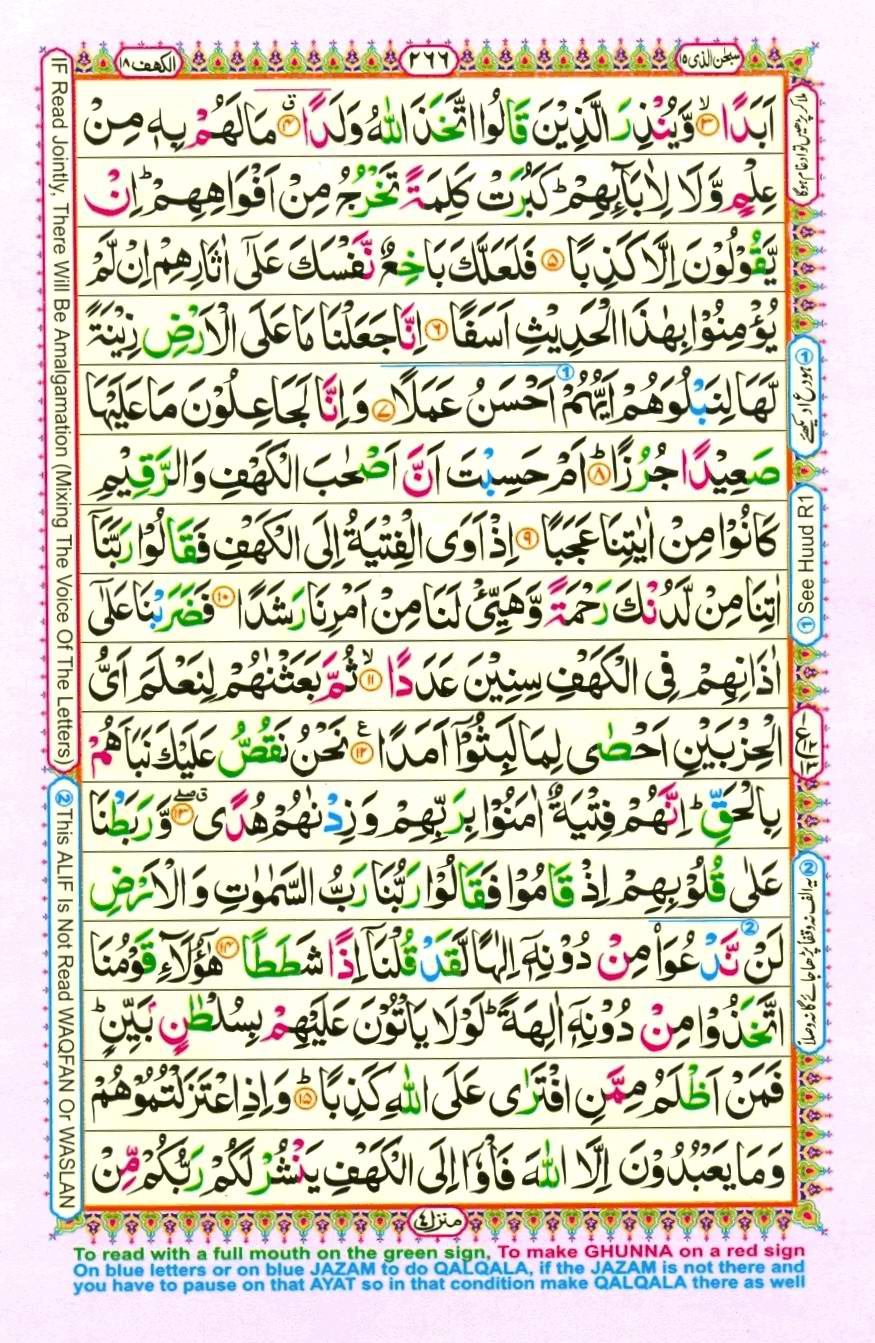 سبحٰن الذی ۱۵
۲۶۶
الکهف ۱۸
اَبَدًا ﴿۳﴾ۙ وَّیُنْذِرَ الَّذِیْنَ قَالُوا اتَّخَذَ اللّٰهُ وَلَدًا ﴿۴﴾ۗ مَا لَهُمْ بِهٖ مِنْ
عِلْمٍ وَّلَا لِاٰبَآئِهِمْ ؕ کَبُرَتْ کَلِمَةً تَخْرُجُ مِنْ اَفْوَاهِهِمْ ؕ اِنْ
یَّقُوْلُوْنَ اِلَّا کَذِبًا ﴿۵﴾ فَلَعَلَّکَ بَاخِعٌ نَّفْسَکَ عَلٰۤی اٰثَارِهِمْ اِنْ لَّمْ
یُؤْمِنُوْا بِهٰذَا الْحَدِیْثِ اَسَفًا ﴿۶﴾ اِنَّا جَعَلْنَا مَا عَلَی الْاَرْضِ زِیْنَةً
لَّهَا لِنَبْلُوَهُمْ اَیُّهُمْ اَحْسَنُ عَمَلًا ﴿۷﴾ وَ اِنَّا لَجَاعِلُوْنَ مَا عَلَیْهَا
صَعِیْدًا جُرُزًا ﴿۸﴾ؕ اَمْ حَسِبْتَ اَنَّ اَصْحٰبَ الْکَهْفِ وَ الرَّقِیْمِ
کَانُوْا مِنْ اٰیٰتِنَا عَجَبًا ﴿۹﴾ اِذْ اَوَی الْفِتْیَةُ اِلَی الْکَهْفِ فَقَالُوْا رَبَّنَاۤ
اٰتِنَا مِنْ لَّدُنْکَ رَحْمَةً وَّ هَیِّئْ لَنَا مِنْ اَمْرِنَا رَشَدًا ﴿۱۰﴾ فَضَرَبْنَا عَلٰۤی
اٰذَانِهِمْ فِی الْکَهْفِ سِنِیْنَ عَدَدًا ﴿۱۱﴾ۙ ثُمَّ بَعَثْنٰهُمْ لِنَعْلَمَ اَیُّ
الْحِزْبَیْنِ اَحْصٰی لِمَا لَبِثُوْۤا اَمَدًا ﴿۱۲﴾ع نَحْنُ نَقُصُّ عَلَیْکَ نَبَاَهُمْ
بِالْحَقِّ ؕ اِنَّهُمْ فِتْیَةٌ اٰمَنُوْا بِرَبِّهِمْ وَ زِدْنٰهُمْ هُدًی ﴿۱۳﴾ وَّ رَبَطْنَا
عَلٰی قُلُوْبِهِمْ اِذْ قَامُوْا فَقَالُوْا رَبُّنَا رَبُّ السَّمٰوٰتِ وَ الْاَرْضِ
لَنْ نَّدْعُوَاۡ مِنْ دُوْنِهٖۤ اِلٰهًا لَّقَدْ قُلْنَاۤ اِذًا شَطَطًا ﴿۱۴﴾ هٰۤؤُلَآءِ قَوْمُنَا
اتَّخَذُوْا مِنْ دُوْنِهٖۤ اٰلِهَةً ؕ لَوْلَا یَاْتُوْنَ عَلَیْهِمْ بِسُلْطٰنٍۭ بَیِّنٍ ؕ
فَمَنْ اَظْلَمُ مِمَّنِ افْتَرٰی عَلَی اللّٰهِ کَذِبًا ﴿۱۵﴾ؕ وَ اِذِ اعْتَزَلْتُمُوْهُمْ
وَ مَا یَعْبُدُوْنَ اِلَّا اللّٰهَ فَاْوٗۤا اِلَی الْکَهْفِ یَنْشُرْ لَکُمْ رَبُّکُمْ مِّنْ
ملا کر پڑھیں تو ادغام ہوگا
① See Huud R1
② یہ الف نہ وقفاً پڑھا جائے گا نہ وصلاً
IF Read Jointly, There Will Be Amalgamation (Mixing The Voice Of The Letters)
② This ALIF Is Not Read WAQFAN Or WASLAN
منزل ۴
To read with a full mouth on the green sign, To make GHUNNA on a red sign
On blue letters or on blue JAZAM to do QALQALA, if the JAZAM is not there and
you have to pause on that AYAT so in that condition make QALQALA there as well